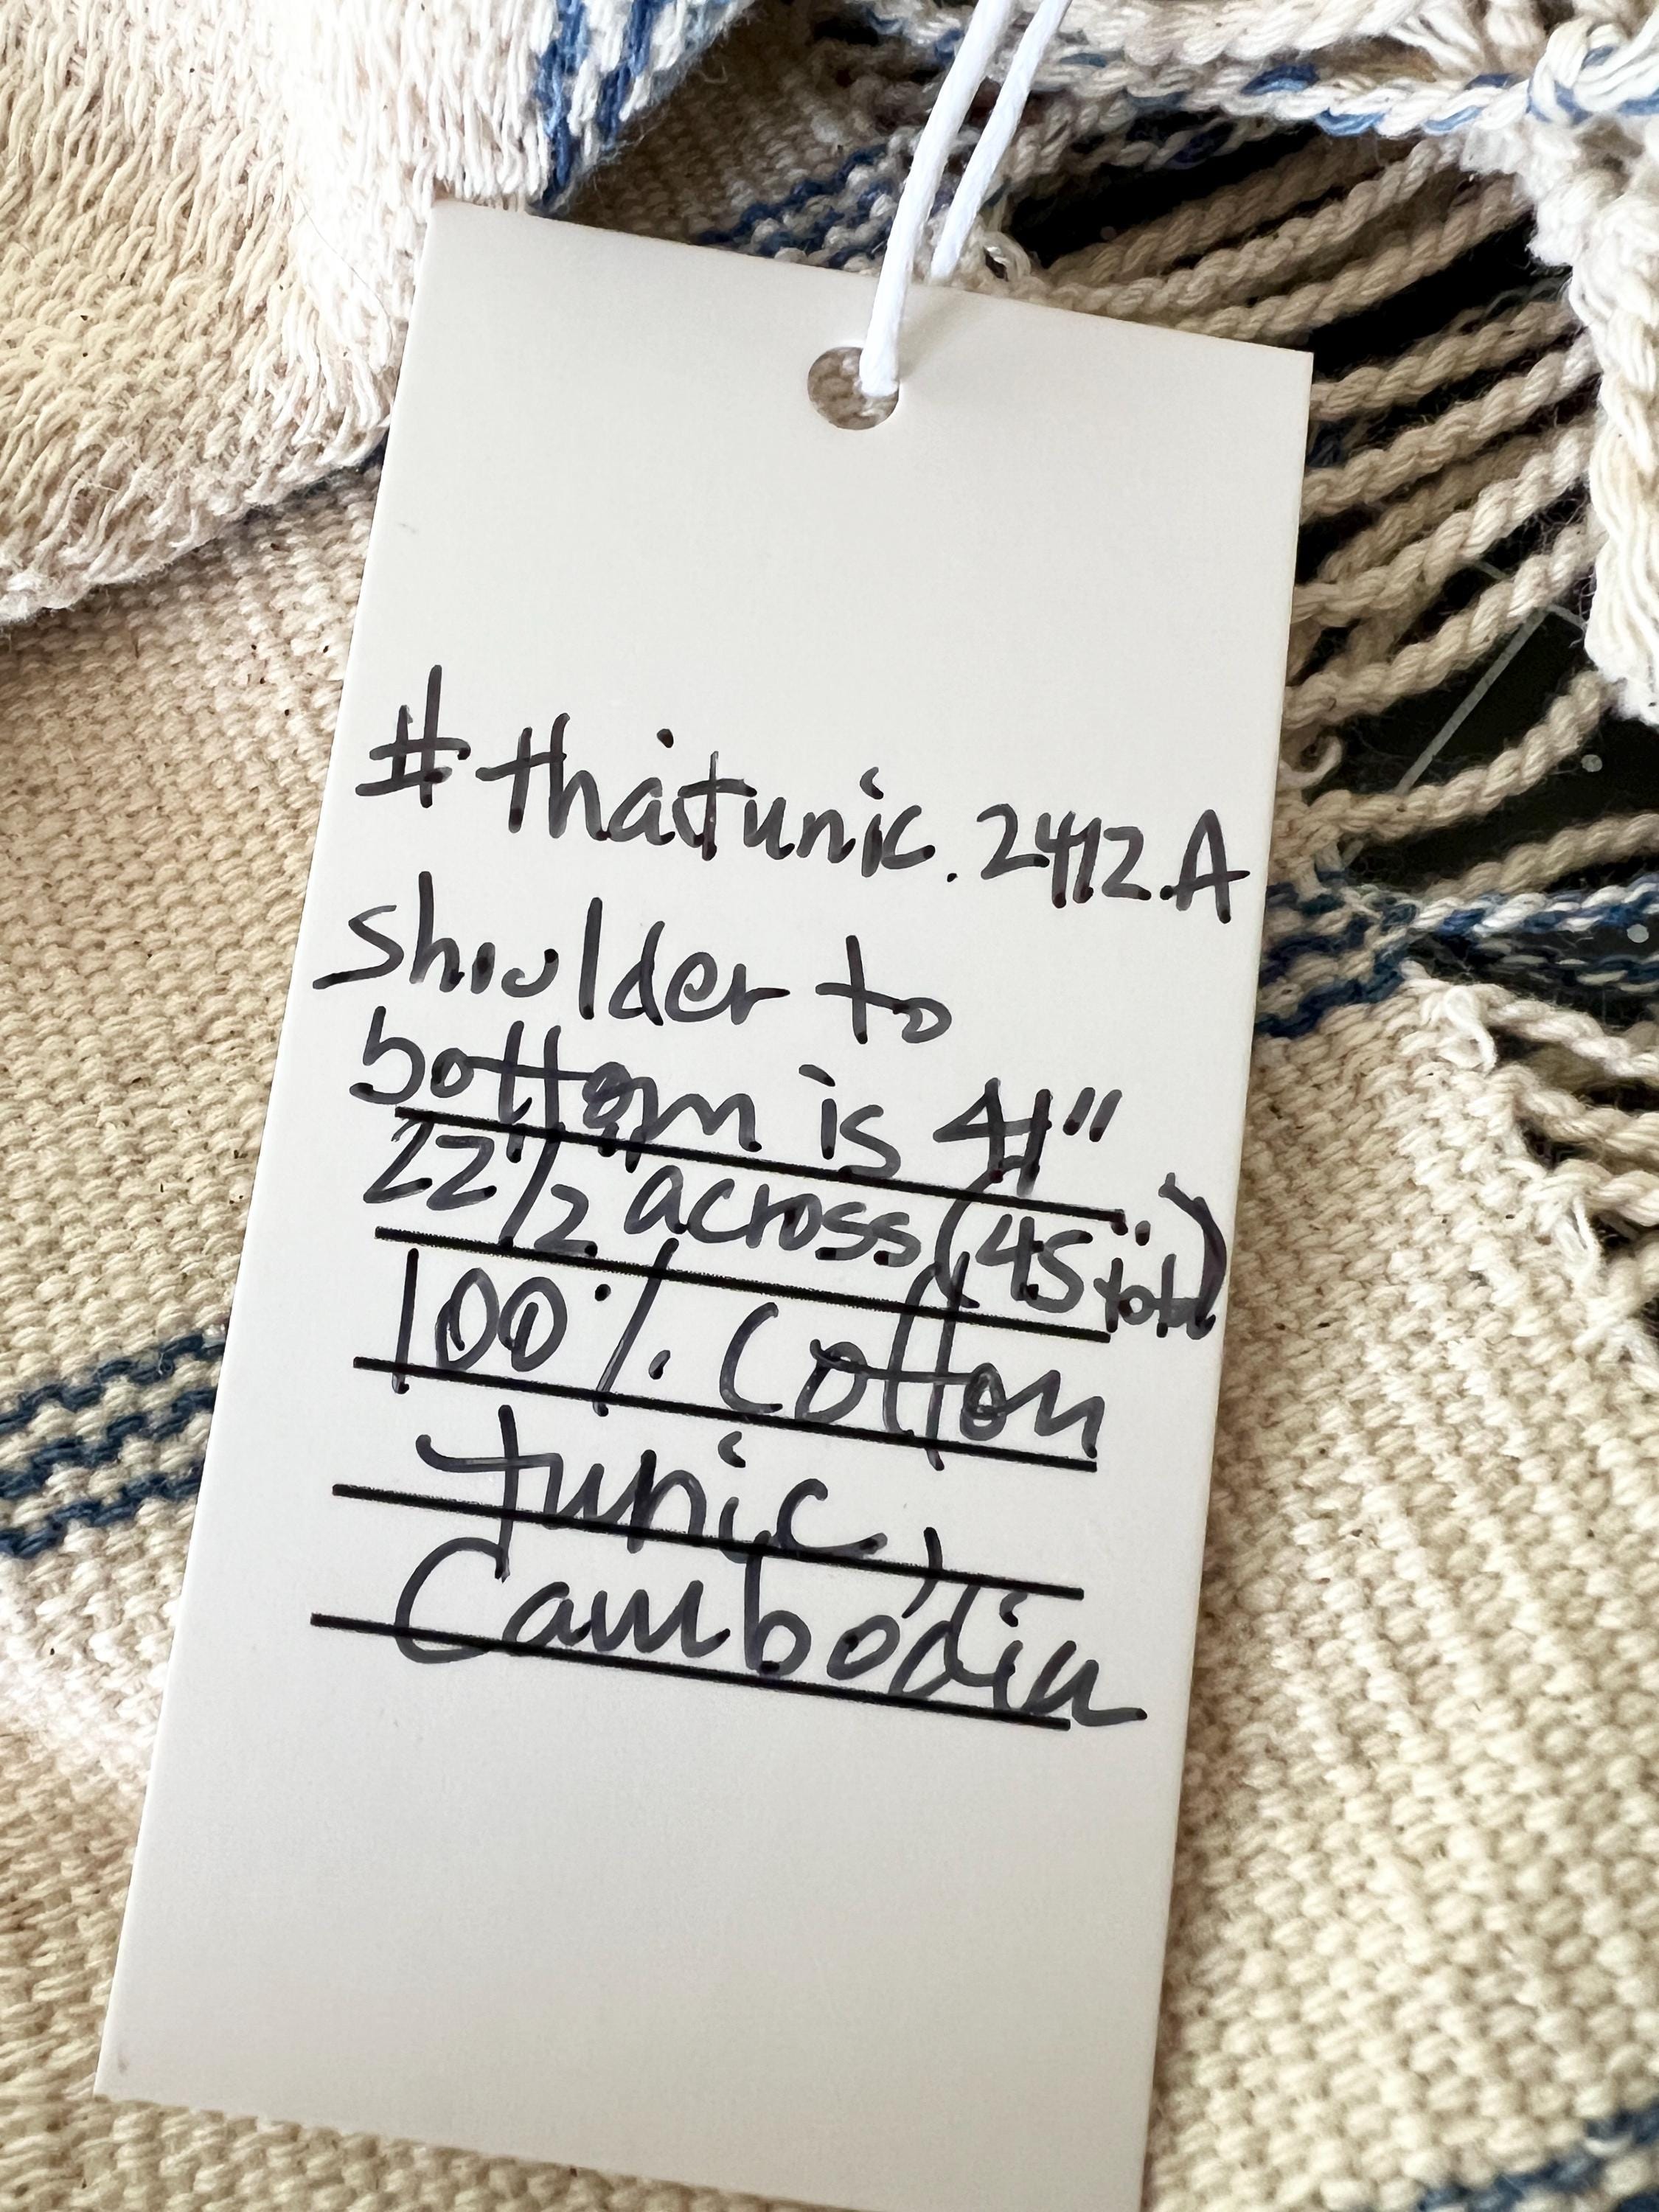 #thaitunic.2412.A
Shoulder to
bottom is 41"
22 1/2" across (45" total)
100% Cotton
tunic,
Cambodia